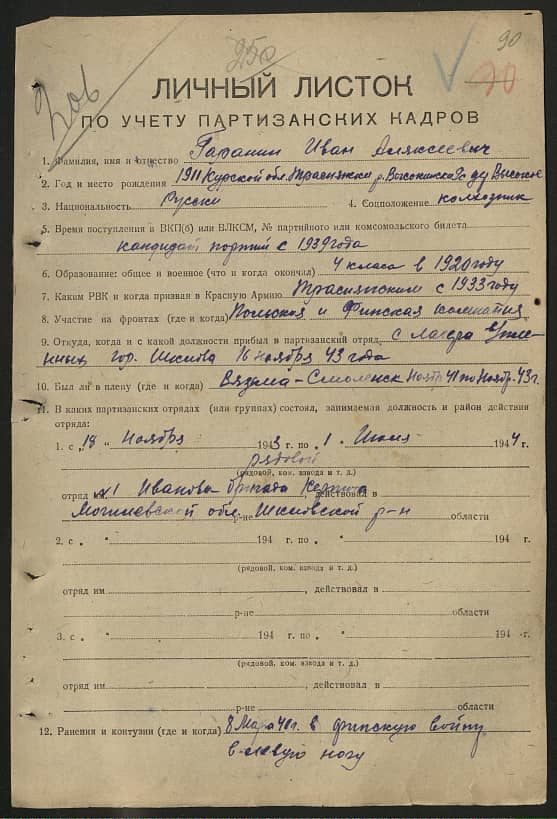 90
258
20
Зов
ЛИЧНЫЙ ЛИСТОК
ПО УЧЕТУ ПАРТИЗАНСКИХ КАДРОВ
1. Фамилия, имя и отчество Гаранин Иван Алексеевич
2. Год и место рождения 1911 Курской обл. р. д. Высокое
3. Национальность Русский 4. Соцположение колхозник
5. Время поступления в ВКП(б) или ВЛКСМ, № партийного или комсомольского билета
кандидат партии с 1939 года
6. Образование: общее и военное (что и когда окончил) 4 класа в 1920 году
7. Каким РВК и когда призван в Красную Армию с 1933 году
8. Участие на фронтах (где и когда) Польская и Финская компания
9. Откуда, когда и с какой должности прибыл в партизанский отряд с лагера в/пле-
нных гор. Шклова 16 ноября 43 года
10. Был ли в плену (где и когда) Вязьма-Смоленск Нояб 41 по Ноябр. 43 г.
11. В каких партизанских отрядах (или группах) состоял, занимаемая должность и район действия
отряда:
1. с „18 " Ноября 1943 г. по „1 " Июля 1944 г.
рядовой
(рядовой, ком. взвода и т. д.)
отряд им Иванова бригада действовал в
Могилевской обл. Шкловской р-н
р-не области
2. с „ " 194 г. по „ " 194 г.
(рядовой, ком. взвода и т. д.)
отряд им , действовал в
р-не области
3. с „ " 194 г. по „ " 194 г.
(рядовой, ком. взвода и т. д.)
отряд им , действовал в
р-не области
12. Ранения и контузии (где и когда) 8 Мара 40 г. в финскую войну
в левую ногу